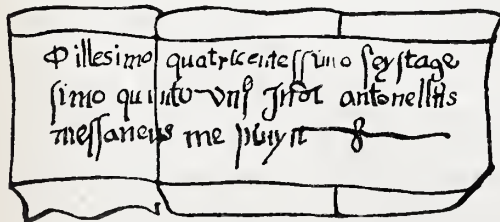 Millesimo quatricentessimo sexstage
simo quinto antonellus
messaneus me pinxit